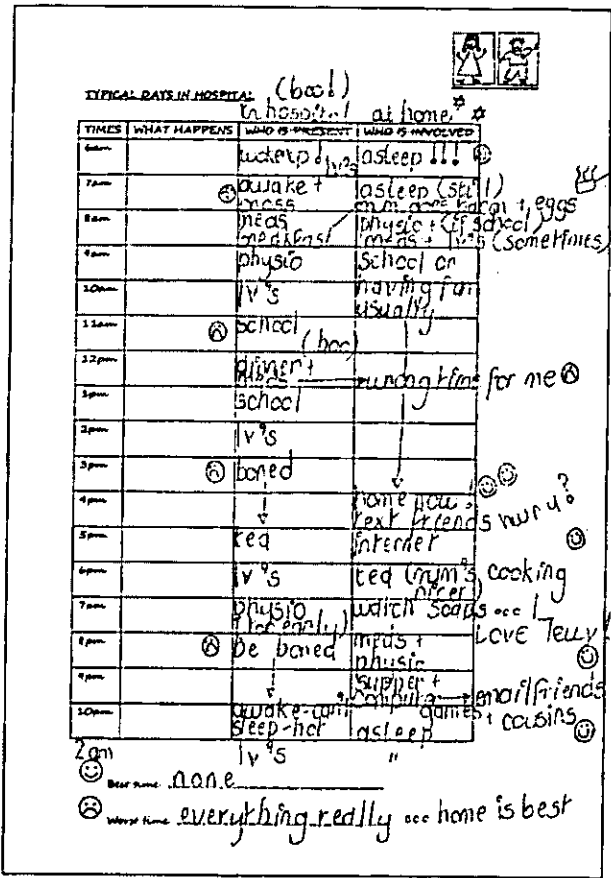 TYPICAL DAYS IN HOSPITAL (boo!)
in hospital at home
TIMES WHAT HAPPENS WHO IS PRESENT WHO IS INVOLVED
6am wakeup! asleep!!!
7am awake + asleep (still)
eggs
8am meds physio + (if school)
meds + IV's (sometimes)
9am physio school or
10am IV's having fun
usually
11am school
(boo)
12pm dinner +
wrong time for me
1pm school
2pm IV's
3pm bored
4pm home now!
text friends hw r u?
5pm tea internet
6pm IV's tea (mum's cooking
nicer)
7pm physio watch soaps... I
(too early) LOVE Telly!
8pm be bored meds +
physio
9pm supper +
computer email friends
games + cousins
10pm awake-can't
sleep-hot asleep
2am IV's "
Best time none
Worst time everything really ... home is best